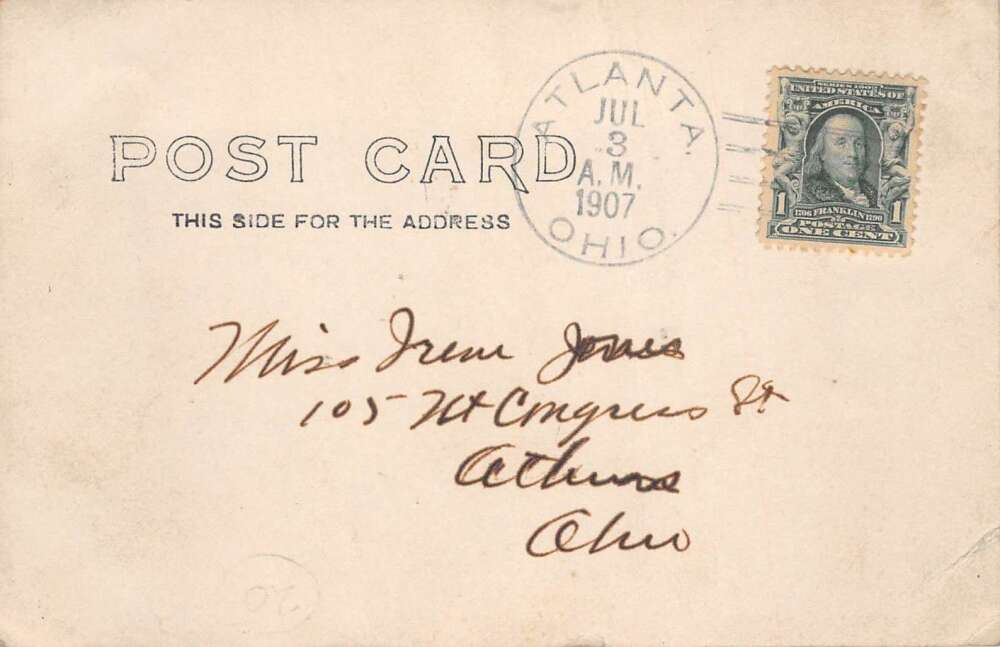 POST CARD
THIS SIDE FOR THE ADDRESS
ATLANTA.
JUL
3
A.M.
1907
OHIO.
SERIES 1902
UNITED STATES OF
AMERICA
1706 FRANKLIN 1790
1 POSTAGE 1
ONE CENT
Miss Irene Jones
105 Congress St
Athens
Ohio
20